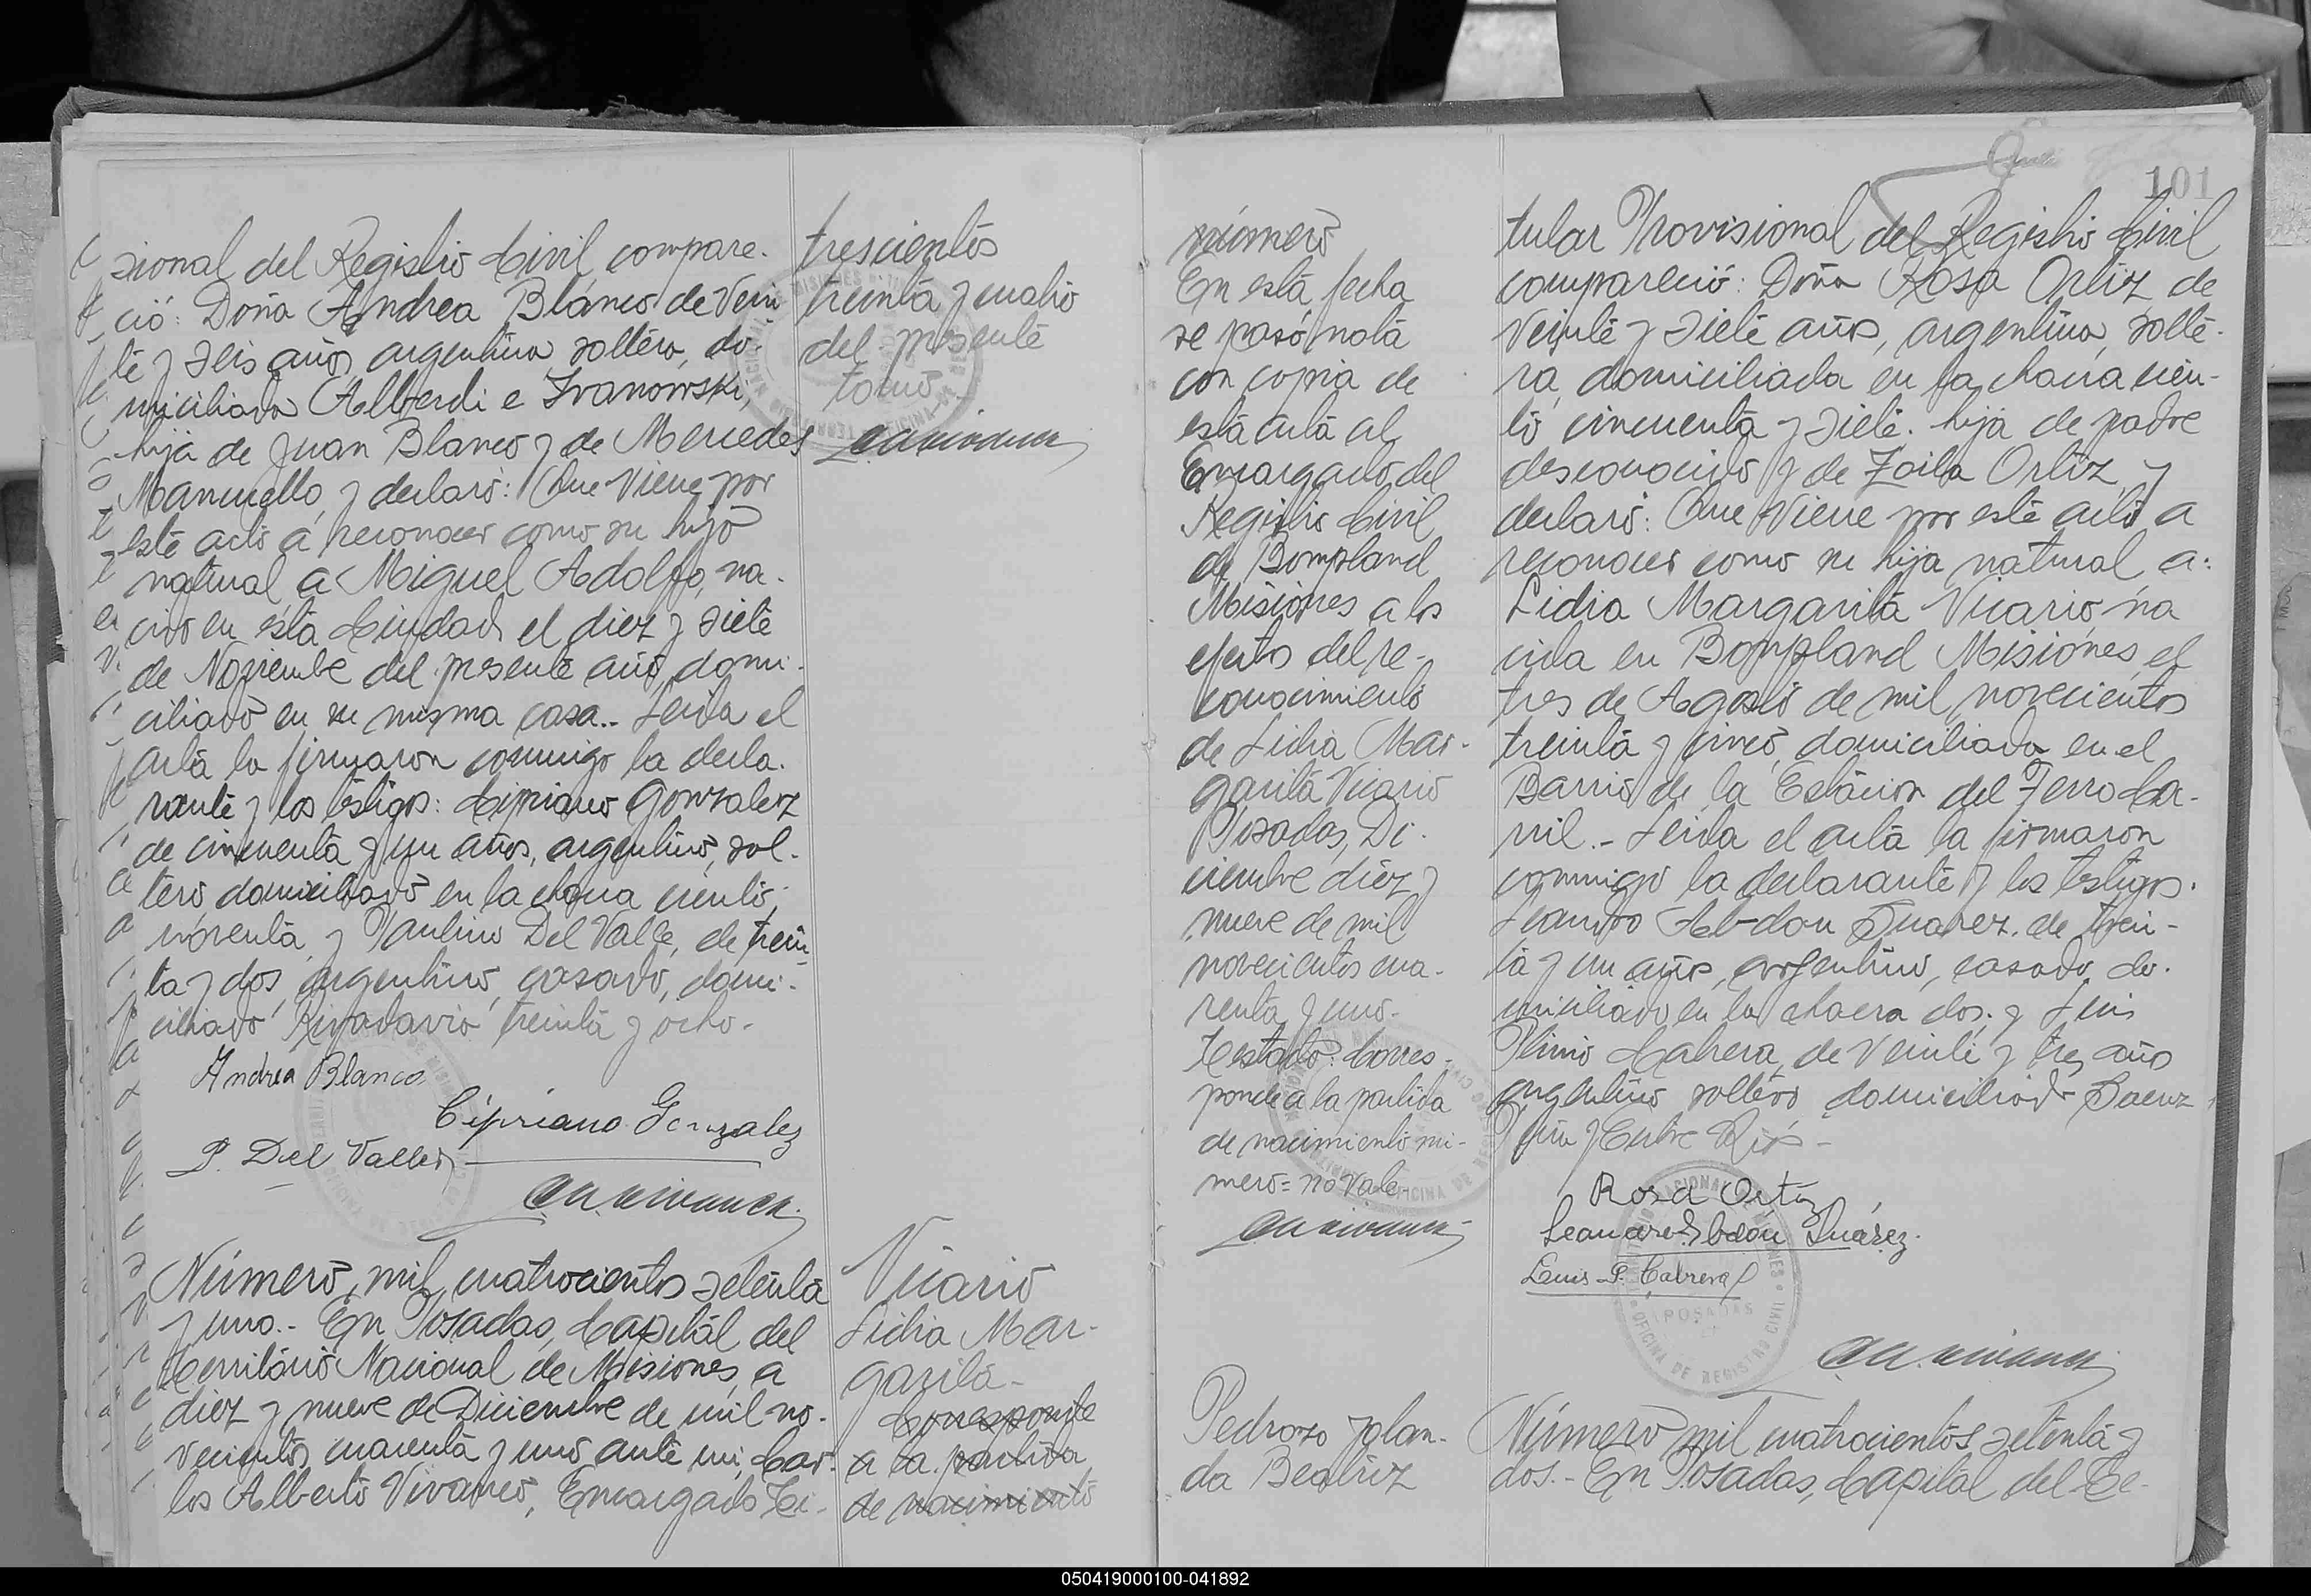 sional del Registro Civil compare-
ció: Doña Andrea Blanco de Vein
te y seis años, argentina soltera, do-
miciliada Alberdi e Ivanowski,
hija de Juan Blanco y de Mercedes
y declaró: Que viene por
este acto a reconocer como su hijo
natural a Miguel Adolfo, na-
cido en esta Ciudad el diez y siete
de Noviembre del presente año, domi-
ciliado en su misma casa.- Leida el
acta la firmaron conmigo la decla-
rante y los testigos: Cipriano Gonzalez
de cincuenta y un años, argentino, sol-
tero domiciliado en la chacra ciento
noventa y Paulino Del Valle, de trein
ta y dos, argentino, casado, domi-
ciliado Rivadavia treinta y ocho-
Andrea Blanco
Cipriano Gonzalez
P. Del Valle
trescientos
treinta y cuatro
del presente
tomo
Número, mil cuatrocientos setenta
y uno.- En Posadas, Capital del
Territorio Nacional de Misiones, a
diez y nueve de Diciembre de mil no-
vecientos cuarenta y uno ante mi, Car-
los Alberto Vivanco, Encargado Ti-
Vicario
Lidia Mar-
garita-
Corresponde
a la partida
de nacimiento
número
En esta fecha
se pasó nota
con copia de
esta acta al
Encargado del
Registro Civil
de Bompland
Misiones a los
efectos del re-
conocimiento
de Lidia Mar-
garita Vicario
Posadas, Di-
ciembre diez y
nueve de mil
novecientos cua-
renta y uno-
Testado: Corres-
ponde a la partida
de nacimiento nú-
mero= no vale-
101
tular Provisional del Registro Civil
compareció: Doña Rosa Ortiz, de
Veinte y siete años, argentina, solte-
ra, domiciliada en la chacra cien-
to cincuenta y siete. hija de padre
desconocido y de Zoila Ortiz, y
declaró: Que Viene por este acto a
reconocer como su hija natural a:
Lidia Margarita Vicario, na
cida en Bompland Misiones, el
tres de Agosto de mil novecientos
treinta y cinco, domiciliada en el
Barrio de la Estacion del Ferro Ca-
rril.- Leida el acta la firmaron
conmigo la declarante y los testigos.
Leandro Abdon Suarez. de trein-
ta y un años, argentino, casado, do-
miciliado en la chacra dos. y Luis
Plinio Cabrera, de Veinte y tres años
argentino soltero domiciliado Saenz
Peña y Entre Rios-
Rosa Ortiz
Leandro Abdón Suárez.
Luis P. Cabrera
POSADAS
OFICINA DE REGISTRO CIVIL
Pedrozo Yolan-
da Beatriz
Número mil cuatrocientos setenta y
dos.- En Posadas, Capital del Te-
050419000100-041892